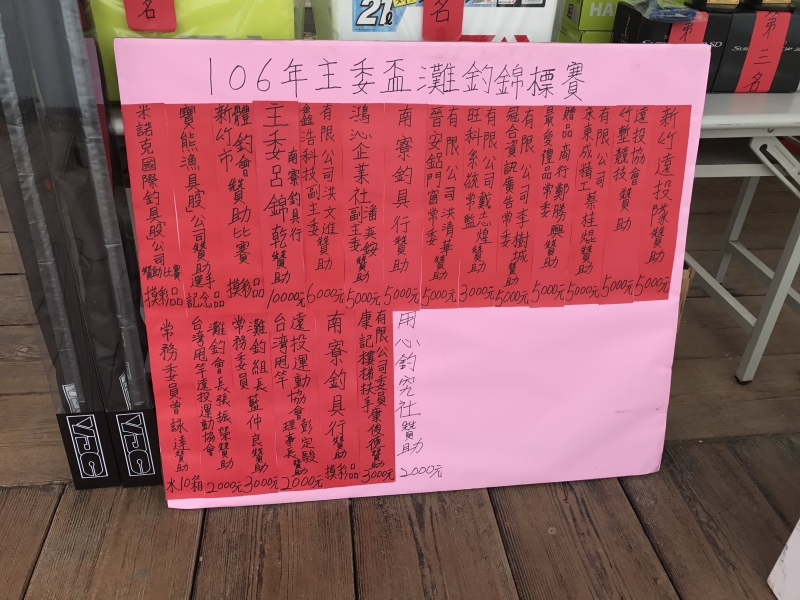 106年主委盃灘釣錦標賽
新竹遠投隊贊助 5000元
遠投協會 竹塹競技 贊助 5000元
有限公司 東東成精工 蔡桂焜贊助 5000元
贈品商行鄭勝興贊助 最愛禮品常委 5000元
有限公司李樹城贊助 冠合資訊廣告常委 5000元
有限公司戴志煌贊助 旺科系統常監 3000元
有限公司洪清華贊助 晉安鋁門窗常委 5000元
南寮釣具行贊助 5000元
鴻沁企業社 潘英銨 副主委 贊助 5000元
有限公司洪文進贊助 鑫浩科技副主委 6000元
南寮釣具行 主委呂錦乾贊助 10000元
體釣會贊助比賽 新竹市 摸彩品
寶熊漁具股公司贊助選手記念品
米諾克國際釣具股公司贊助比賽 摸彩品
用心釣究社贊助 2000元
有限公司委員康俊循贊助 康記樓梯扶手 3000元
南寮釣具行贊助 摸彩品
遠投運動協會彭定駿 台湾甩竿 理事長贊助 2000元
灘釣組長藍仲良贊助 常務委員 3000元
灘釣會長張振榮贊助 台湾甩竿遠投運動協會 2000元
常務委員曾詠達贊助 水10箱
名
名
第
第三名
21ℓ
VFC
VFC